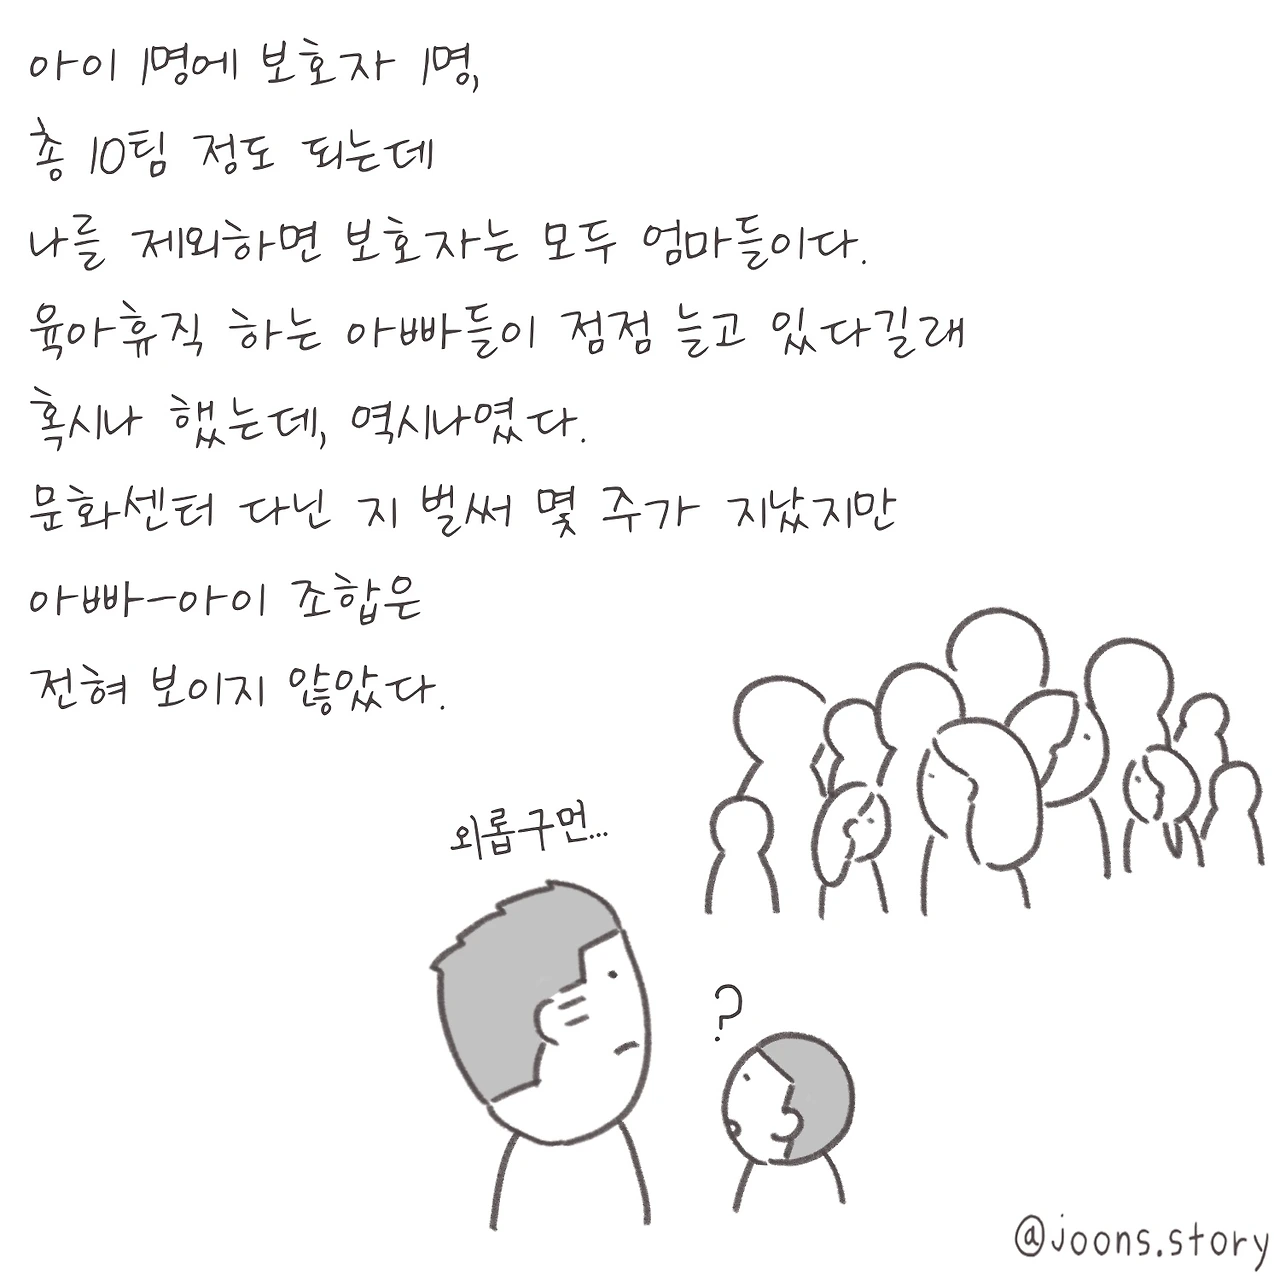 아이 1명에 보호자 1명,
총 10팀 정도 되는데
나를 제외하면 보호자는 모두 엄마들이다.
육아휴직 하는 아빠들이 점점 늘고 있다길래
혹시나 했는데, 역시나였다.
문화센터 다닌 지 벌써 몇 주가 지났지만
아빠-아이 조합은
전혀 보이지 않았다.
외롭구먼...
?
@joons.story